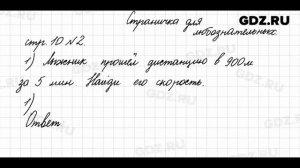 Страничка для
GDZ.RU
любознательных
стр. 10 №2.
1) Лыжник прошёл дистанцию в 900м
за 5 мин. Найди его скорость.
1)
Ответ
GDZ.RU